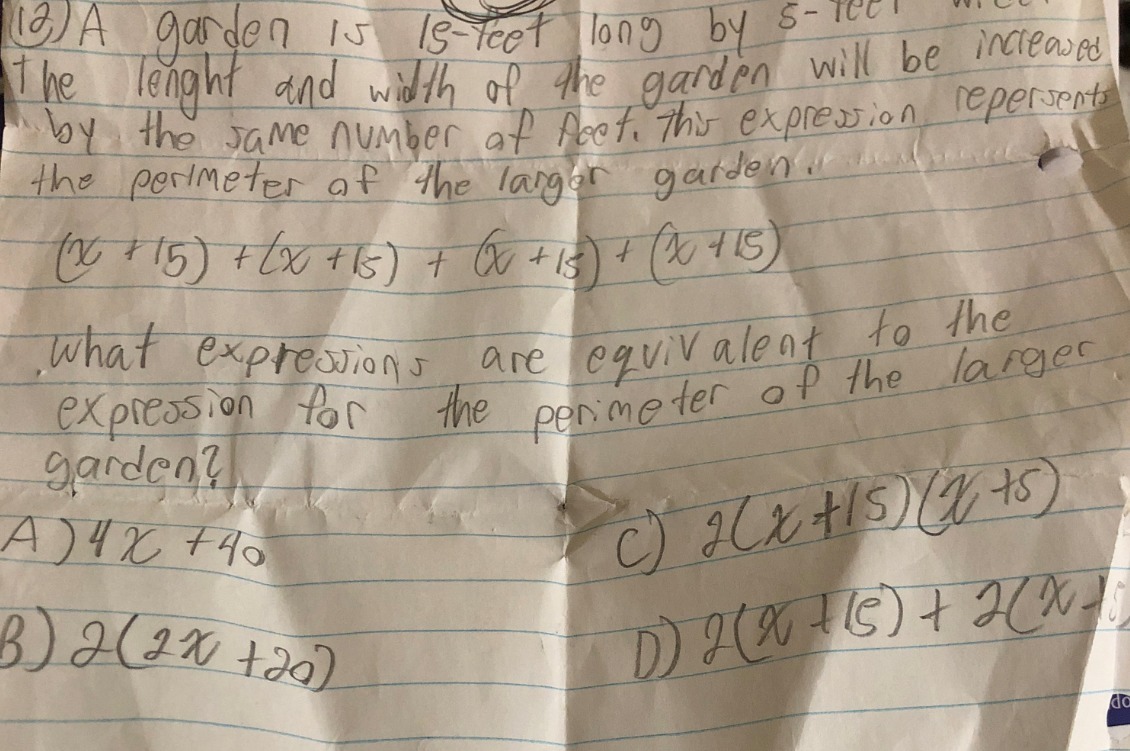 12) A garden is 15-feet long by 5-feet
The lenght and width of the garden will be increased
by the same number of feet. This expression repersents
the perimeter of the larger garden.
(x + 15) + (x + 15) + (x + 15) + (x + 15)
what expressions are equivalent to the
expression for the perimeter of the larger
garden?
A) 4x + 40
C) 2(x + 15)(x + 5)
B) 2(2x + 20)
D) 2(x + 15) + 2(x +
do